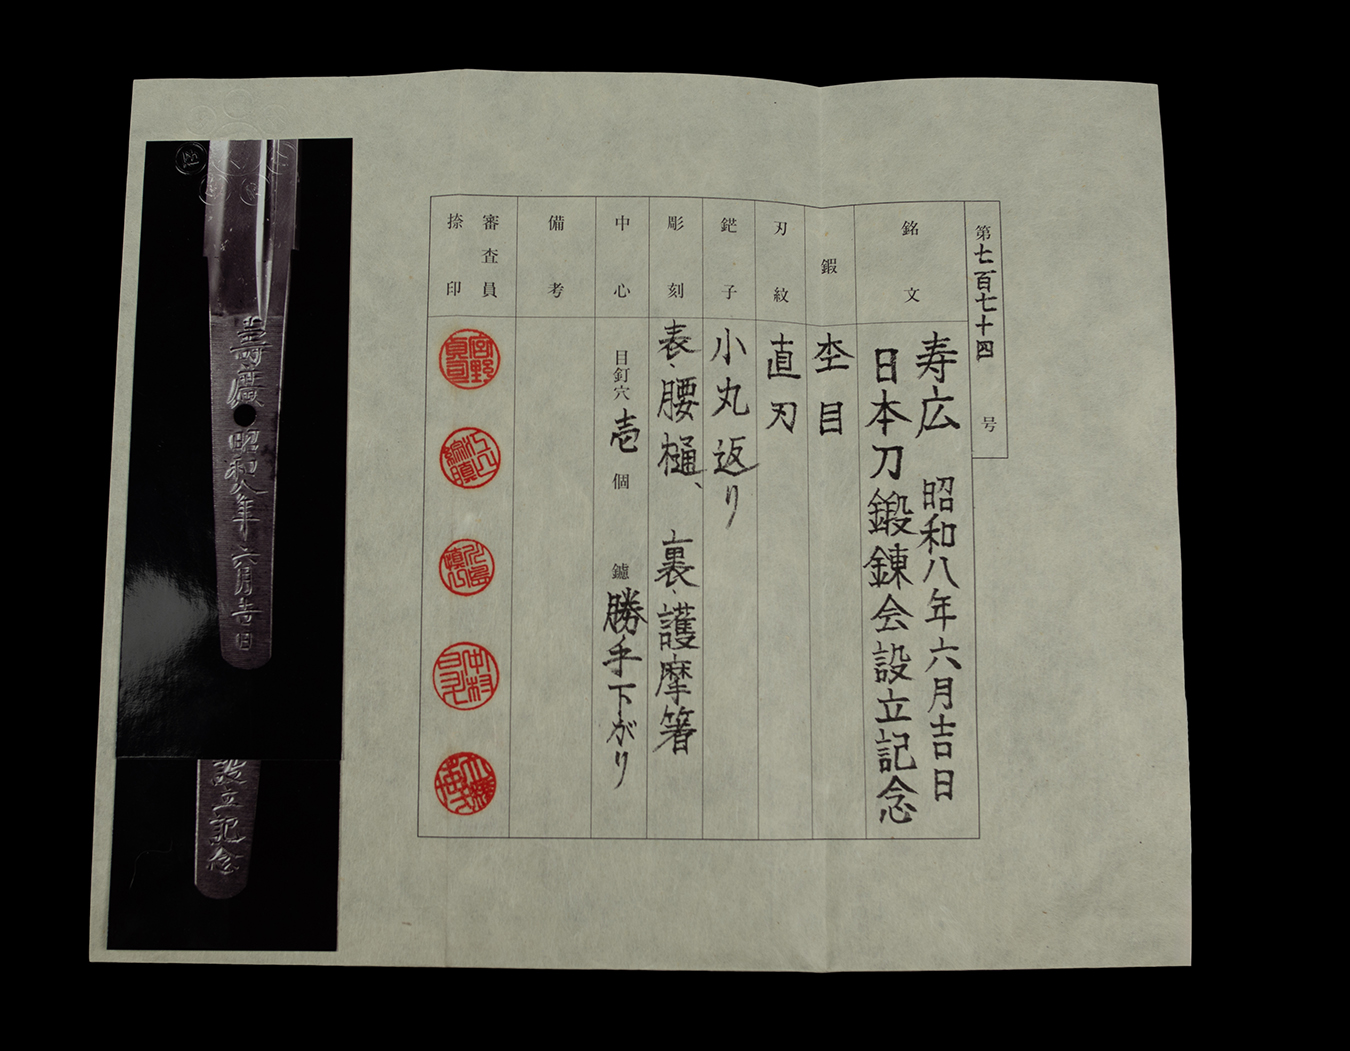 第七百七十四号
銘文
寿広 昭和八年六月吉日
日本刀鍛錬会設立記念
鍜
杢目
刃紋
直刃
鋩子
小丸返り
彫刻
表、腰樋、 裏、護摩箸
中心
目釘穴 壱 個 鑢 勝手下がり
備考
審査員
捺印
宮野貞司
中村
壽廣 昭和八年六月吉日
設立記念